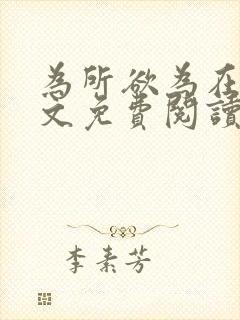 為所欲為在
文免費閱讀
李素芳